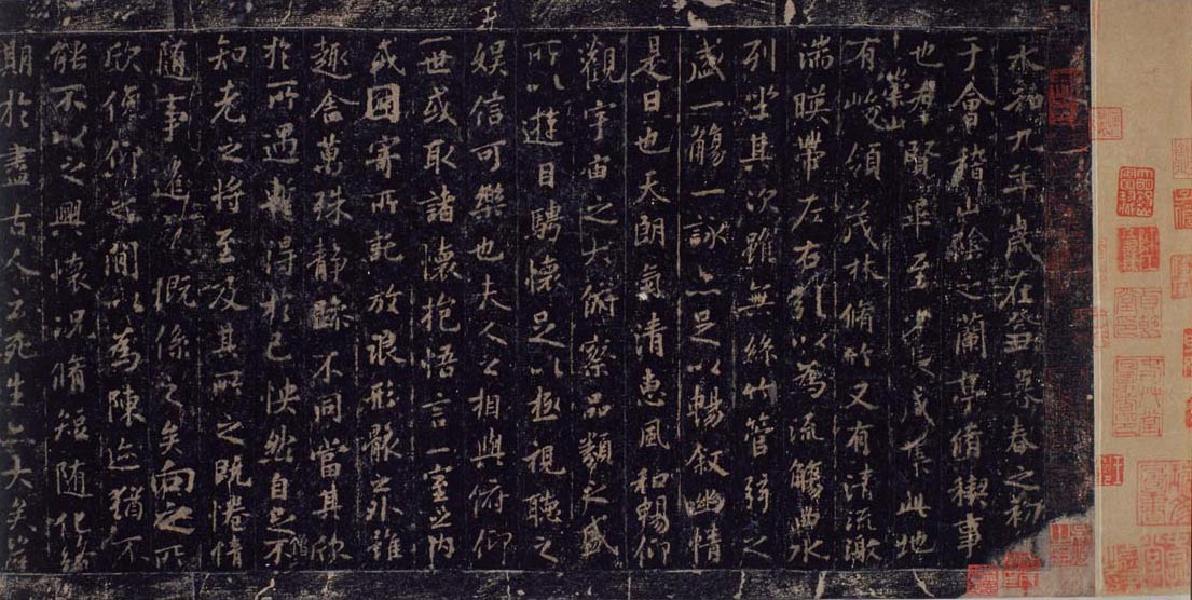 永和九年歲在癸丑暮春之初
于會稽山陰之蘭亭脩稧事
也羣賢畢至少長咸集此地
有崇山峻領茂林脩竹又有清流激
湍暎帶左右引以為流觴曲水
列坐其次雖無絲竹管弦之
盛一觴一詠亦足以暢敘幽情
是日也天朗氣清惠風和暢仰
觀宇宙之大俯察品類之盛
所以遊目騁懷足以極視聽之
娛信可樂也夫人之相與俯仰
一世或取諸懷抱悟言一室之內
或因寄所託放浪形骸之外雖
趣舍萬殊靜躁不同當其欣
於所遇暫得於己怏然自足不
僧
知老之將至及其所之既惓情
隨事遷感慨係之矣向之所
欣俛仰之間以為陳迹猶不
能不以之興懷況脩短隨化終
期於盡古人云死生亦大矣豈